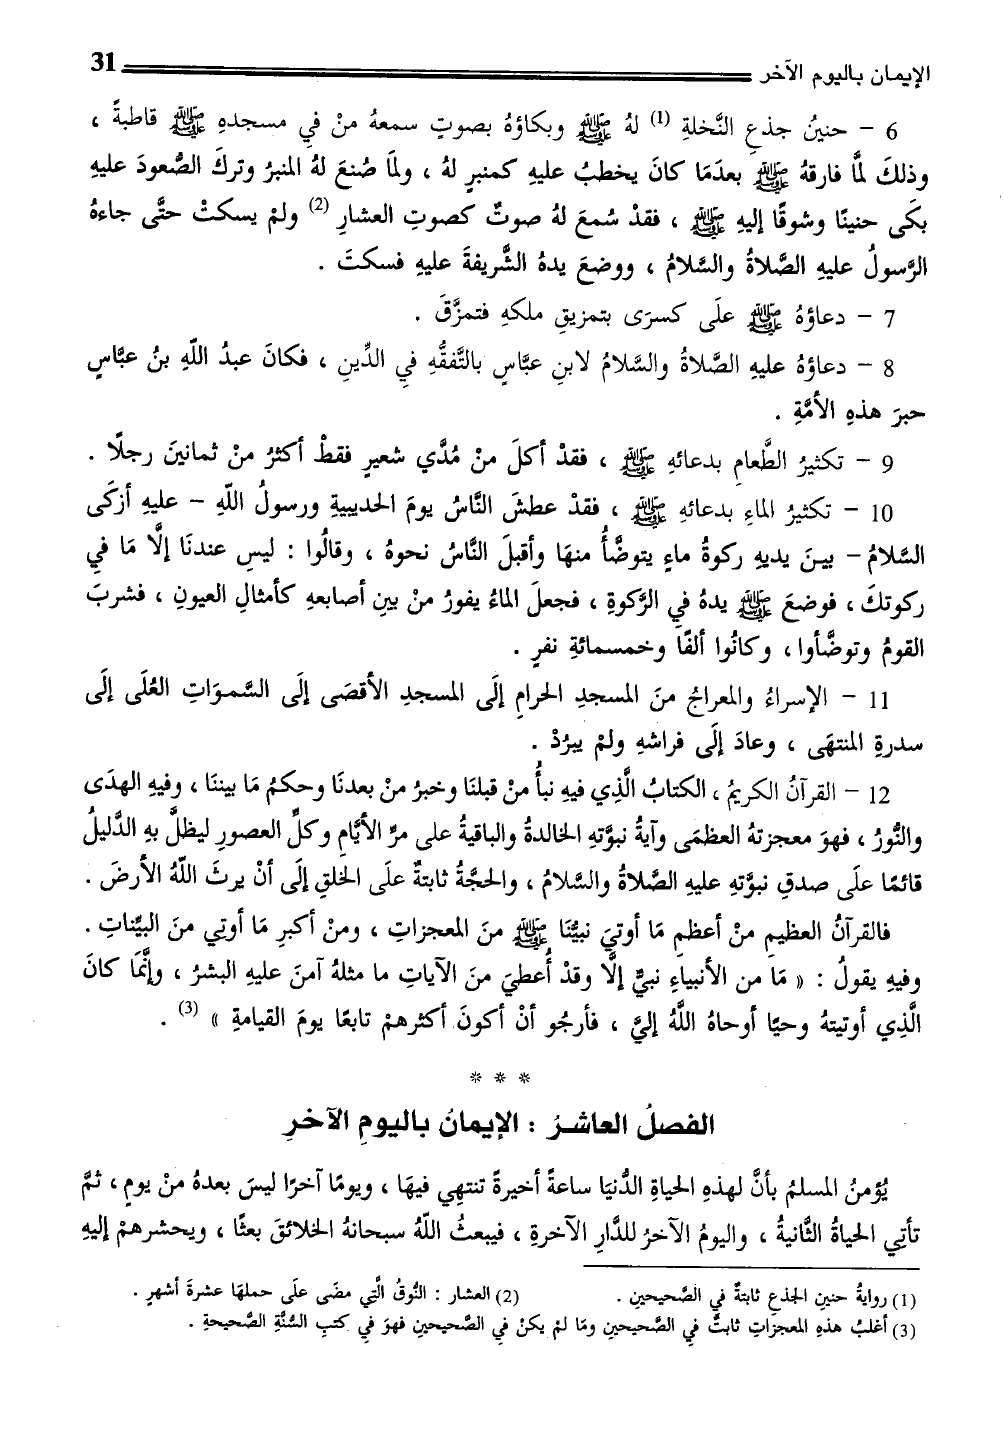 الإيمان باليوم الآخر 31
6 – حنينُ جذعِ النَّخلةِ (1) لهُ ﷺ وبكاؤهُ بصوتٍ سمعهُ منْ في مسجدهِ ﷺ قاطبةً ،
وذلكَ لمَّا فارقهُ ﷺ بعدَمَا كانَ يخطبُ عليهِ كمنبرٍ لهُ ، ولمَا صُنعَ لهُ المنبرُ وتركَ الصُّعودَ عليهِ
بكَى حنينًا وشوقًا إليهِ ﷺ ، فقدْ سُمعَ لهُ صوتٌ كصوتِ العشارِ (2) ولمْ يسكتْ حتَّى جاءهُ
الرَّسولُ عليهِ الصَّلاةُ والسَّلامُ ، ووضعَ يدهُ الشَّريفةَ عليهِ فسكتَ .
7 – دعاؤهُ ﷺ علَى كسرَى بتمزيقِ ملكهِ فتمزَّقَ .
8 – دعاؤهُ عليهِ الصَّلاةُ والسَّلامُ لابنِ عبَّاسٍ بالتَّفقُّهِ في الدِّينِ ، فكانَ عبدُ اللّهِ بنُ عبَّاسٍ
حبرَ هذهِ الأمَّةِ .
9 – تكثيرُ الطَّعامِ بدعائهِ ﷺ ، فقدْ أكلَ منْ مُدَّي شعيرٍ فقطْ أكثرُ منْ ثمانينَ رجلًا .
10 – تكثيرُ الماءِ بدعائهِ ﷺ ، فقدْ عطشَ النَّاسُ يومَ الحديبيةِ ورسولُ اللّهِ – عليهِ أزكَى
السَّلامُ – بينَ يديهِ ركوةُ ماءٍ يتوضَّأُ منهَا وأقبلَ النَّاسُ نحوهُ ، وقالُوا : ليسِ عندنَا إلَّا مَا في
ركوتكَ ، فوضعَ ﷺ يدهُ في الرَّكوةِ ، فجعلَ الماءُ يفورُ منْ بينِ أصابعهِ كأمثالِ العيونِ ، فشربَ
القومُ وتوضَّأوا ، وكانُوا ألفًا وخمسمائةِ نفرٍ .
11 – الإسراءُ والمعراجُ منَ المسجدِ الحرامِ إلَى المسجدِ الأقصَى إلَى السَّمَوَاتِ العُلَى إلَى
سدرةِ المنتهَى ، وعادَ إلَى فراشهِ ولمْ يبرُدْ .
12 – القرآنُ الكريمُ ، الكتابُ الَّذِي فيهِ نبأُ منْ قبلنَا وخبرُ منْ بعدنَا وحكمُ مَا بيننَا ، وفيهِ الهدَى
والنُّورُ ، فهوَ معجزتهُ العظمَى وآيةُ نبوَّتهِ الخالدةُ والباقيةُ على مرِّ الأيَّامِ وكلِّ العصورِ ليظلَّ بهِ الدَّليلُ
قائمًا علَى صدقِ نبوَّتهِ عليهِ الصَّلاةُ والسَّلامُ ، والحجَّةُ ثابتةٌ علَى الخلقِ إلَى أنْ يرثَ اللّهُ الأرضَ .
فالقرآنُ العظيمِ منْ أعظمِ مَا أوتيَ نبيُّنَا ﷺ منَ المعجزاتِ ، ومنْ أكبرِ مَا أوتِي منَ البيِّناتِ .
وفيهِ يقولُ : « مَا من الأنبياءِ نبيٌّ إلَّا وقدْ أُعطيَ منَ الآياتِ ما مثلهُ آمنَ عليهِ البشرُ ، وإنَّمَا كانَ
الَّذِي أوتيتهُ وحيًا أوحاهُ اللَّهُ إليَّ ، فأرجُو أنْ أكونَ أكثرهمْ تابعًا يومَ القيامةِ » (3) .
* * *
الفصلُ العاشرُ : الإيمانُ باليومِ الآخرِ
يُؤمنُ المسلمُ بأنَّ لهذهِ الحياةِ الدُّنيَا ساعةً أخيرةً تنتهِي فيهَا ، ويومًا آخرًا ليسَ بعدهُ منْ يومٍ ، ثمَّ
تأتِي الحياةُ الثَّانيةُ ، واليومُ الآخرُ للدَّارِ الآخرةِ ، فيبعثُ اللّهُ سبحانهُ الخلائقَ بعثًا ، ويحشرهمْ إليهِ
(1) روايةُ حنينِ الجذعِ ثابتةٌ في الصَّحيحينِ . (2) العشار : النُّوقُ الَّتِي مضَى علَى حملهَا عشرةُ أشهرٍ .
(3) أغلبُ هذهِ المعجزاتِ ثابتٌ في الصَّحيحينِ ومَا لمْ يكنْ في الصَّحيحينِ فهوَ في كتبِ السُّنَّةِ الصَّحيحةِ .